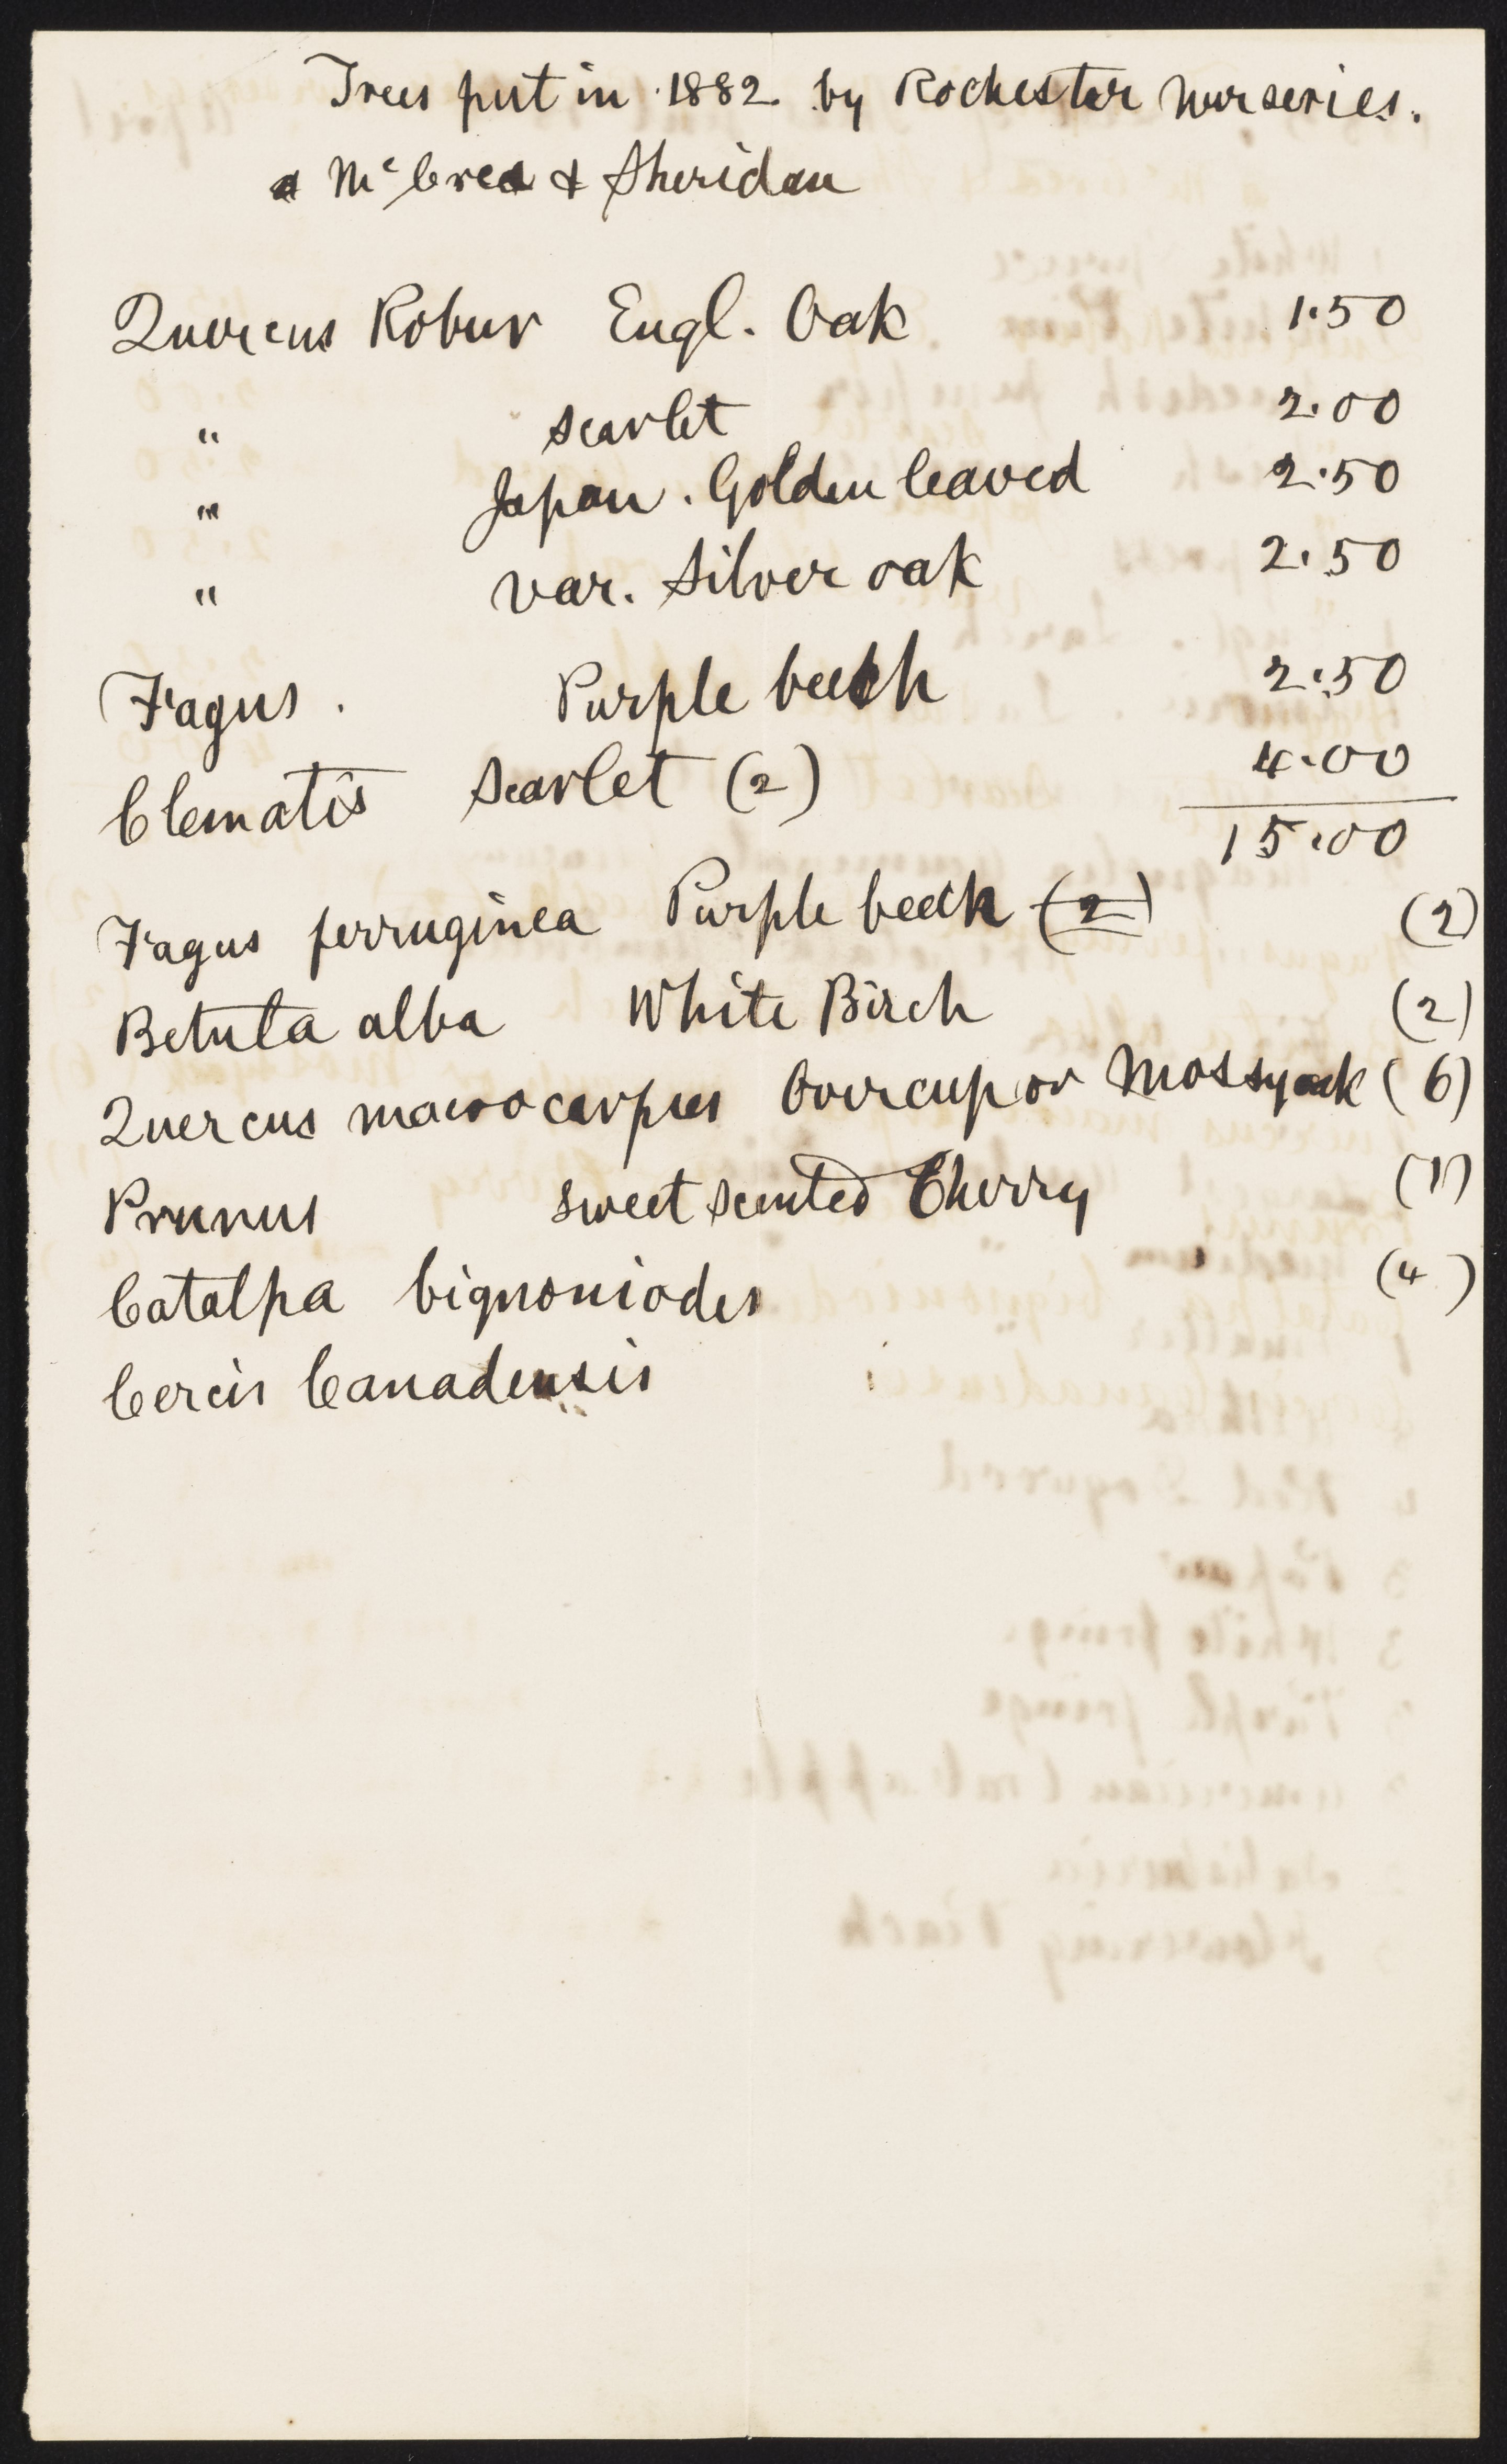 Trees put in 1882 by Rochester Nurseries.
McCrea & Sheridan
Quercus Robur Engl. Oak 1.50
" scarlet 2.00
" Japan. Golden leaved 2.50
" var. Silver oak 2.50
Fagus. Purple beech 2.50
Clematis scarlet (2) 4.00
15.00
Fagus ferruginea Purple beech (2) (2)
Betula alba White Birch (2)
Quercus macrocarpus Overcup or Mossyoak (6)
Prunus sweet scented Cherry (1)
Catalpa bignoniodes (4)
Cercis Canadensis